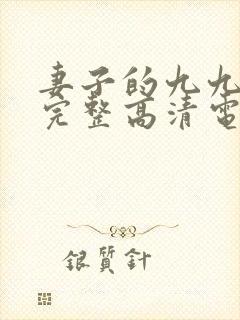 妻子的九九
完整高清電
銀質針